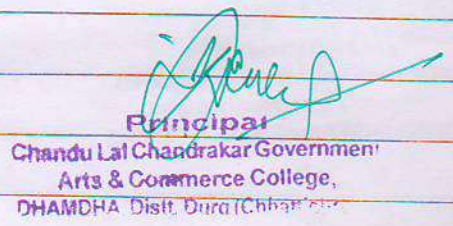 Principal
Chandu Lal Chandrakar Government
Arts & Commerce College,
DHAMDHA Distt. Durg (Chhattis